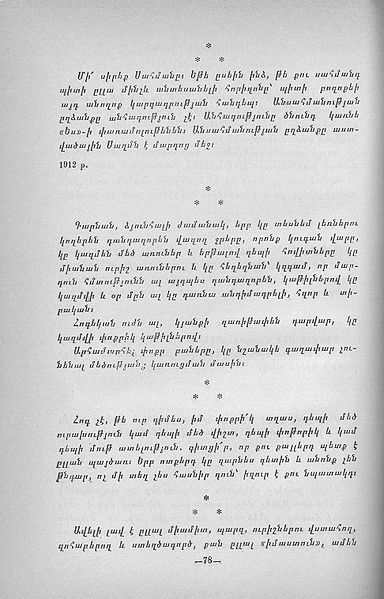 *
* *
Մի՛ սիրեք Սահմանը։ Եթե ըսեին ինձ, թե քու սահմանդ
պիտի ըլլա մինչև անտեսանելի հորիզոնը՝ պիտի բողոքեի
այդ անողոք կարգադրության հանդեպ։ Անսահմանության
ըղձանքը անհագություն չէ։ Անհագությունը ծնունդ կառնե
«Ես»-ի փառամոլութենեն։ Անսահմանության ըղձանքը աստ-
վածային Սաղմն է մարդոց մեջ։
1912 թ.
*
* *
Գարնան, ձյունհալի ժամանակ, երբ կը տեսնեմ լեռներու
կողերեն դանդաղորեն վազող ջրերը, որոնք կուգան վարը,
կը կազմեն մեծ առուներ և երթալով դեպի հովիտները կը
միանան ուրիշ առուներու և կը հեղեղնան՝ կզգամ, որ մար-
դուն հմտությունն ալ այդպես դանդաղորեն, կաթիլներով կը
կազմվի և օր մըն ալ կը դառնա անդիմադրելի, հզոր և տի-
րական։
Հոգեկան ուժն ալ, կյանքի զառիթափեն դարվար, կը
կազմվի փոքրիկ կաթիլներով։
Արհամարհել փոքր բաները, կը նշանակե գաղափար չու-
նենալ մեծության կառուցման մասին։
*
* *
Հոգ չէ, թե ուր դիմես, իմ փոքրի՛կ տղաս, դեպի մեծ
ուրախություն կամ դեպի մեծ վիշտ, դեպի փոթորիկ և կամ
դեպի մութ ատելություն. գիտցի՛ր, որ քու քայլերդ պետք է
ըլլան պայծառ։ Երբ ոտքերդ կը զարնես գետին և անոնք չեն
թնդար, ոչ մի տեղ չես հասնիր դուն՝ իզուր է քու նպատակդ։
*
* *
Ավելի լավ է ըլլալ միամիտ, պարզ, ուրիշներու վստահող,
զոհաբերող և ստեղծագործ, քան ըլլալ «իմաստուն», ամեն
—78—